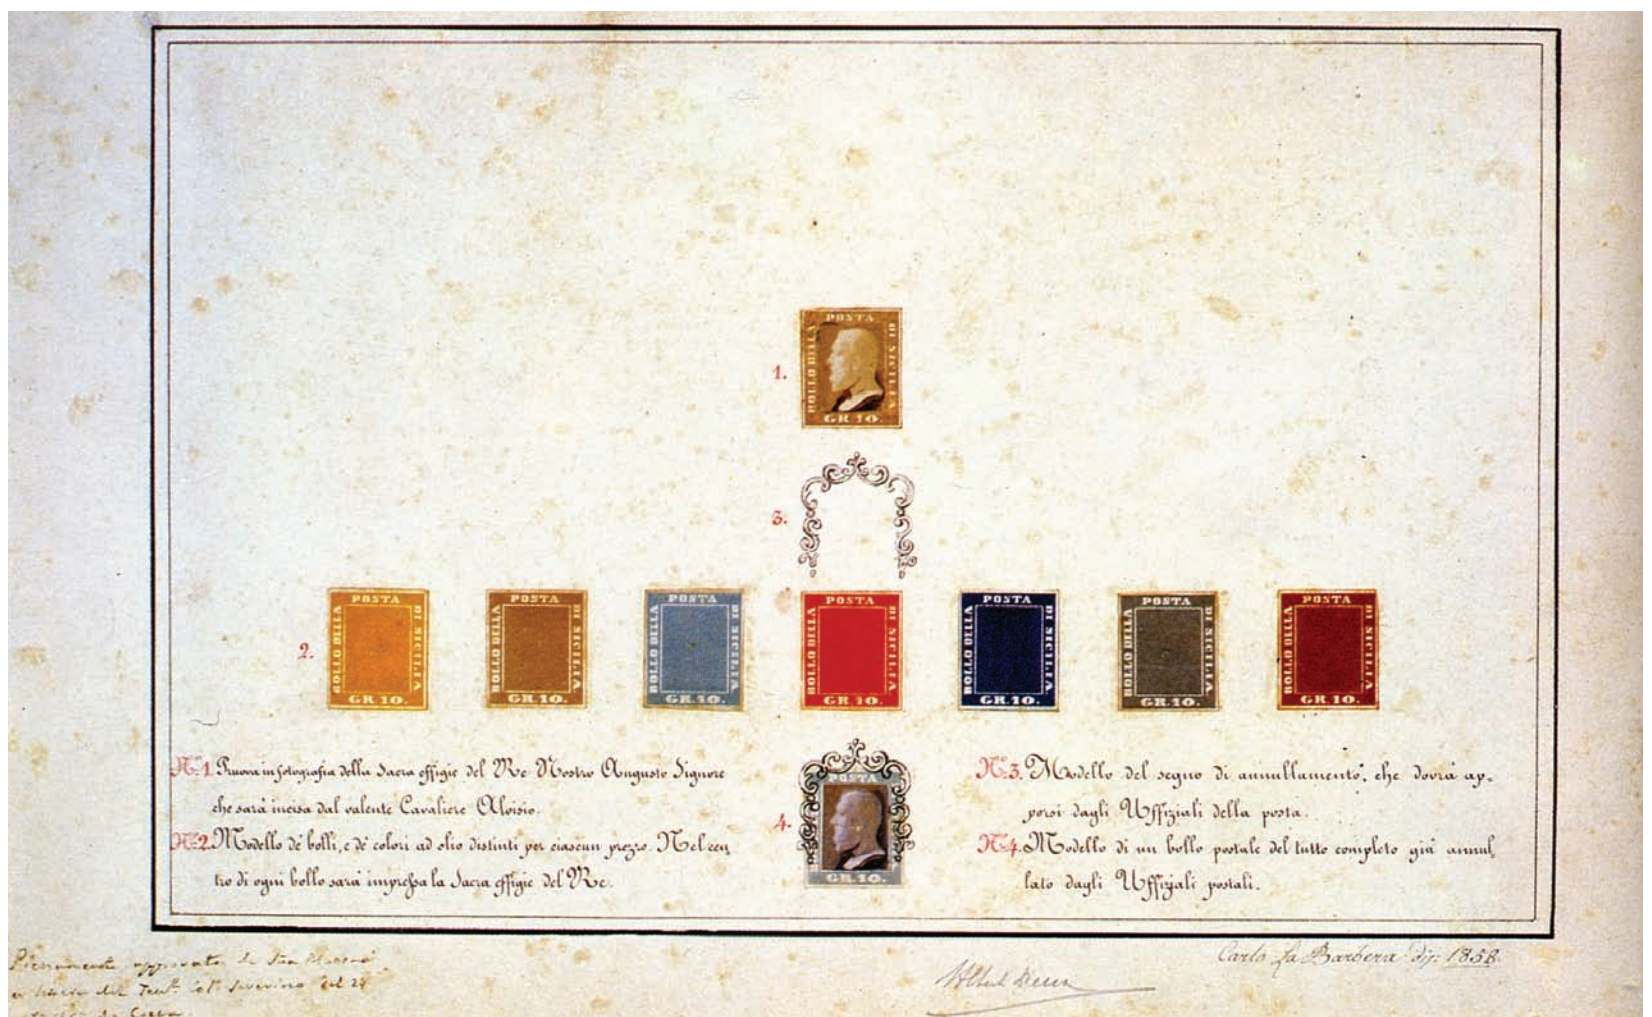 POSTA
BOLLO DELLA
DI SICILIA
GR. 10.
1.
3.
2.
POSTA
BOLLO DELLA
DI SICILIA
GR. 10.
POSTA
BOLLO DELLA
DI SICILIA
GR. 10.
POSTA
BOLLO DELLA
DI SICILIA
GR. 10.
POSTA
BOLLO DELLA
DI SICILIA
GR. 10.
POSTA
BOLLO DELLA
DI SICILIA
GR. 10.
POSTA
BOLLO DELLA
DI SICILIA
GR. 10.
POSTA
BOLLO DELLA
DI SICILIA
GR. 10.
No. 1. Pruova in fotografia della Sacra effigie del Re Nostro Augusto Signore
che sarà incisa dal valente Cavaliere Aloisio.
No. 2. Modello de' bolli, e de' colori ad olio distinti per ciascun prezzo. Nel cen,
tro di ogni bollo sarà impressa la Sacra effigie del Re.
4.
POSTA
GR. 10.
No. 3. Modello del segno di annullamento, che dovrà ap-
porsi dagli Uffiziali della posta.
No. 4. Modello di un bollo postale del tutto completo già annul,
lato dagli Uffiziali postali.
Pienamente approvato da Sua Maestà
del 29
Carlo La Barbera dip: 1858.